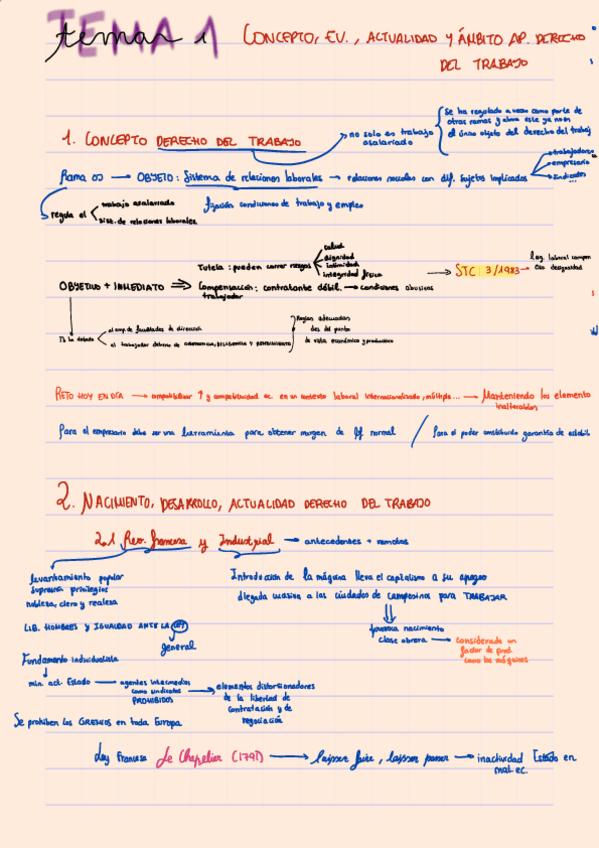 TEMA 1
tema 1
CONCEPTO, EV., ACTUALIDAD Y ÁMBITO AP. DERECHO
DEL TRABAJO
Se ha regulado a veces como parte de
otras ramas y ahora este ya no es
el único objeto del derecho del trabaj
no solo es trabajo
asalariado
1. CONCEPTO DERECHO DEL TRABAJO
trabajadores
Rama OJ → OBJETO: Sistema de relaciones laborales → relaciones sociales con dif. sujetos implicados
empresario
sindicatos
...
regula el
trabajo asalariado
sist. de relaciones laborales
fijación condiciones de trabajo y empleo
salud
dignidad
intimidad
integridad física
Tutela: pueden correr riesgos
→ STC 3/1983 →
leg. laboral compen
esa desigualdad
OBJETIVO + INMEDIATO ⇒ Compensación: contratante débil → condiciones abusivas
trabajador
Reglas adecuadas
des del punto
de vista económico y productivo
el emp. de facultades de dirección
el trabajador deberes de obediencia, diligencia y rendimiento
RETO HOY EN DÍA → compatibilizar ↑ y competitividad ec. en un contexto laboral internacionalizado, múltiple... → Manteniendo los elemento
inalterables
Para el empresario debe ser una herramienta para obtener margen de Bº normal / Para el poder constituido garantía de estabil
2. NACIMIENTO, DESARROLLO, ACTUALIDAD DERECHO DEL TRABAJO
2.1 Rev. francesa y Industrial → antecedentes + remotos
levantamiento popular
supresión privilegios
nobleza, clero y realeza
Introducción de la máquina lleva el capitalismo a su apogeo
llegada masiva a las ciudades de campesinos para TRABAJAR
LIB. HOMBRES Y IGUALDAD ANTE LA LEY
general
nacimiento
clase obrera → considerada un
factor de prod.
como las máquinas
Fundamento individualista
min. act. Estado → agentes intermedios
como sindicatos
PROHIBIDOS
→ elementos distorsionadores
de la libertad de
contratación y de
negociación
Se prohiben los GREMIOS en toda Europa
Ley Francesa Le Chapelier (1791) → laisser faire, laisser passer → inactividad Estado en
mat. ec.